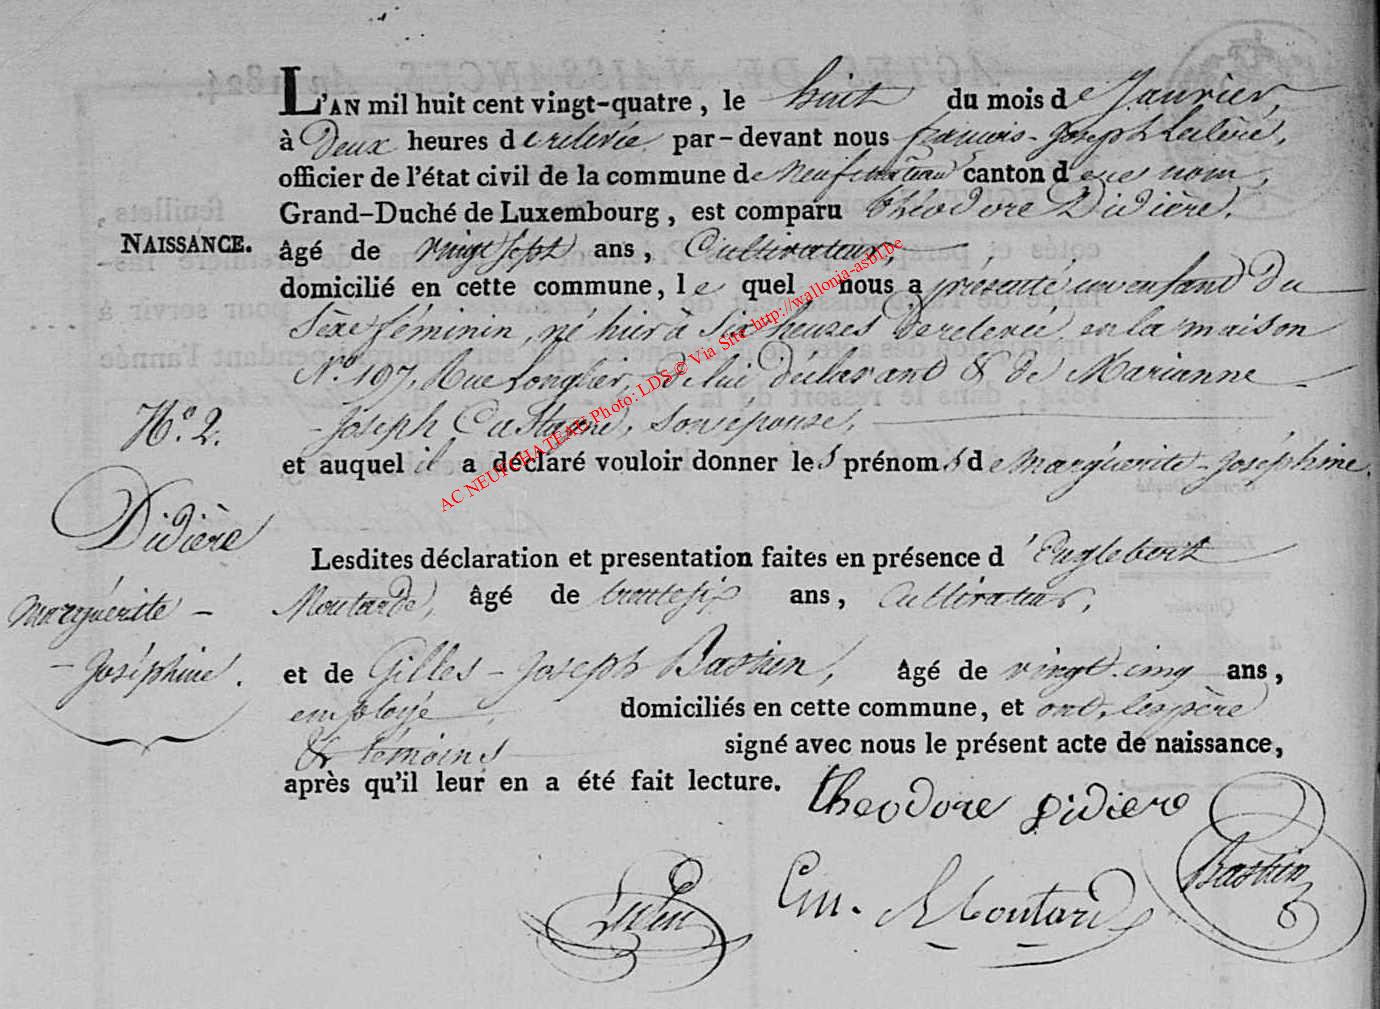 L'AN mil huit cent vingt-quatre, le huit du mois de Janvier,
à Deux heures de relevée par-devant nous françois-Joseph
officier de l'état civil de la commune de Neufchateau canton de ce nom,
Grand-Duché de Luxembourg, est comparu théodore Didière,
NAISSANCE. âgé de vingt sept ans, Cultivateur,
domicilié en cette commune, le quel nous a présenté un enfant du
Sèxe féminin, né hier à Six heures De relevée en la maison
N.o 197, Rue Longlier, de lui déclarant & de Marianne
N.o 2. Joseph Castagne, Son épouse,
et auquel il a déclaré vouloir donner les prénoms de Marguérite-Joséphine.
Didière
Lesdites déclaration et presentation faites en présence d'Englebert
Marguérite - Moutarde, âgé de trente six ans, Cultivateur,
- Joséphine. et de Gilles-Joseph Bastin, âgé de vingt-cinq ans,
employé domiciliés en cette commune, et ont, les père
& témoins signé avec nous le présent acte de naissance,
après qu'il leur en a été fait lecture.
theodore Didiere
Em. Moutard
Bastin
AC NEUFCHATEAU Photo: LDS © Via Site http://wallonia-asbl.be